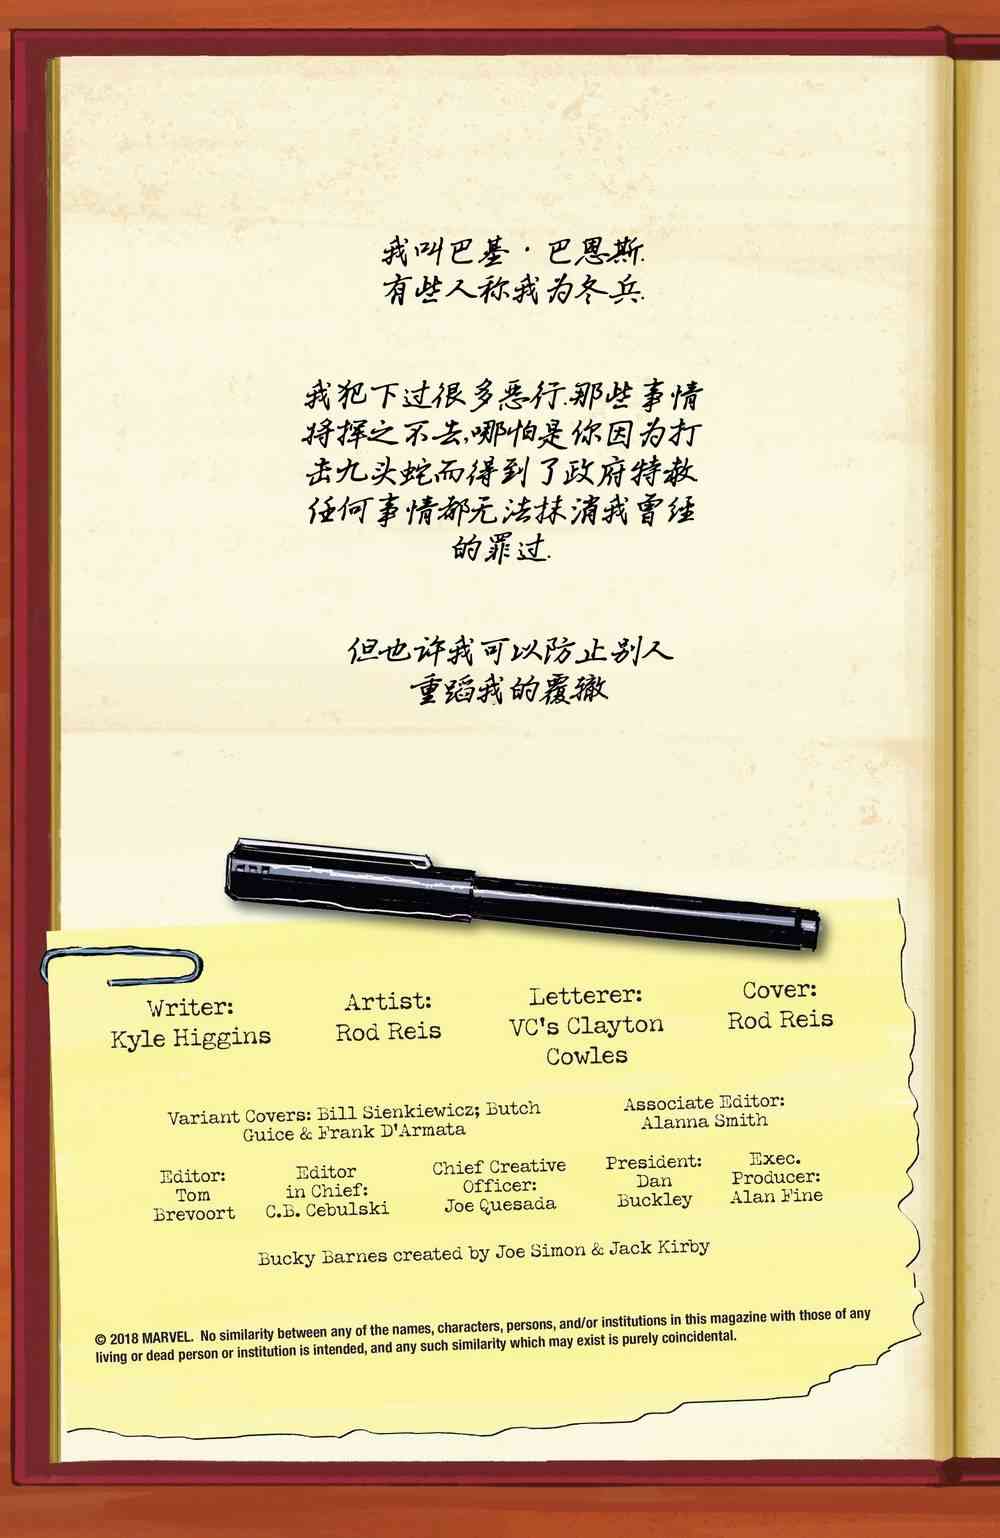 我叫巴基·巴恩斯.
有些人称我为冬兵.
我犯下过很多恶行.那些事情
将挥之不去,哪怕是你因为打
击九头蛇而得到了政府特赦
任何事情都无法抹消我曾经
的罪过.
但也许我可以防止别人
重蹈我的覆辙
Writer:
Kyle Higgins
Artist:
Rod Reis
Letterer:
VC's Clayton
Cowles
Cover:
Rod Reis
Variant Covers: Bill Sienkiewicz; Butch
Guice & Frank D'Armata
Associate Editor:
Alanna Smith
Editor:
Tom
Brevoort
Editor
in Chief:
C.B. Cebulski
Chief Creative
Officer:
Joe Quesada
President:
Dan
Buckley
Exec.
Producer:
Alan Fine
Bucky Barnes created by Joe Simon & Jack Kirby
© 2018 MARVEL. No similarity between any of the names, characters, persons, and/or institutions in this magazine with those of any
living or dead person or institution is intended, and any such similarity which may exist is purely coincidental.